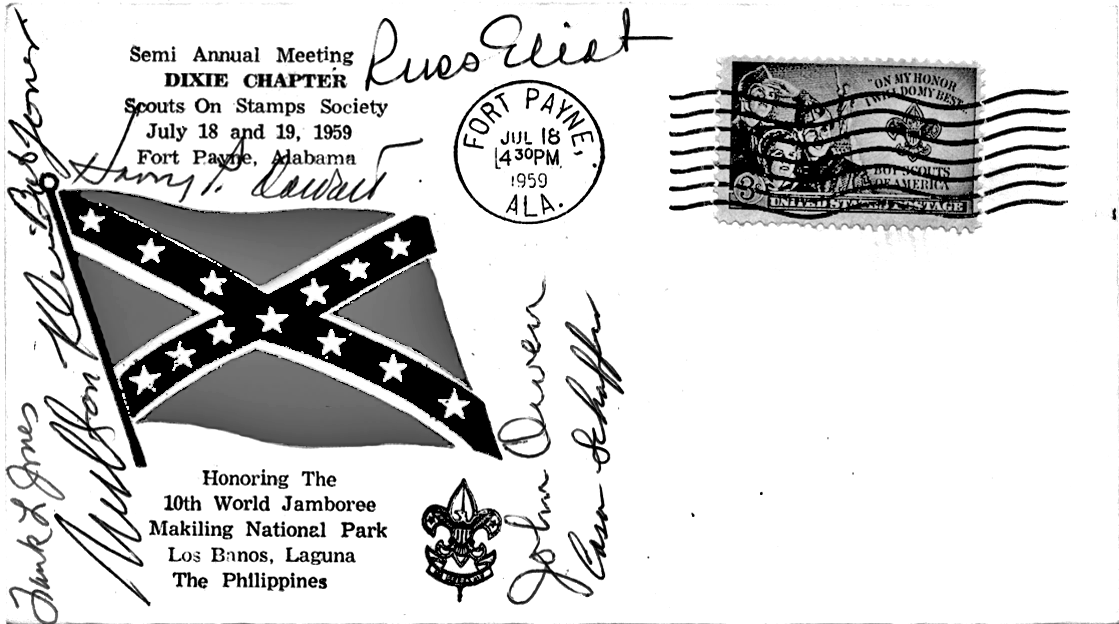 Semi Annual Meeting
DIXIE CHAPTER
Scouts On Stamps Society
July 18 and 19, 1959
Fort Payne, Alabama
Russ Eliot
Harry P.
FORT PAYNE,
JUL 18
430PM
1959
ALA.
"ON MY HONOR
I WILL DO MY BEST
BOY SCOUTS
OF AMERICA
3¢
UNITED STATES POSTAGE
Bob Jones
Milton
Frank L Jones
John Owen
Casa Schaffer
Honoring The
10th World Jamboree
Makiling National Park
Los Banos, Laguna
The Philippines